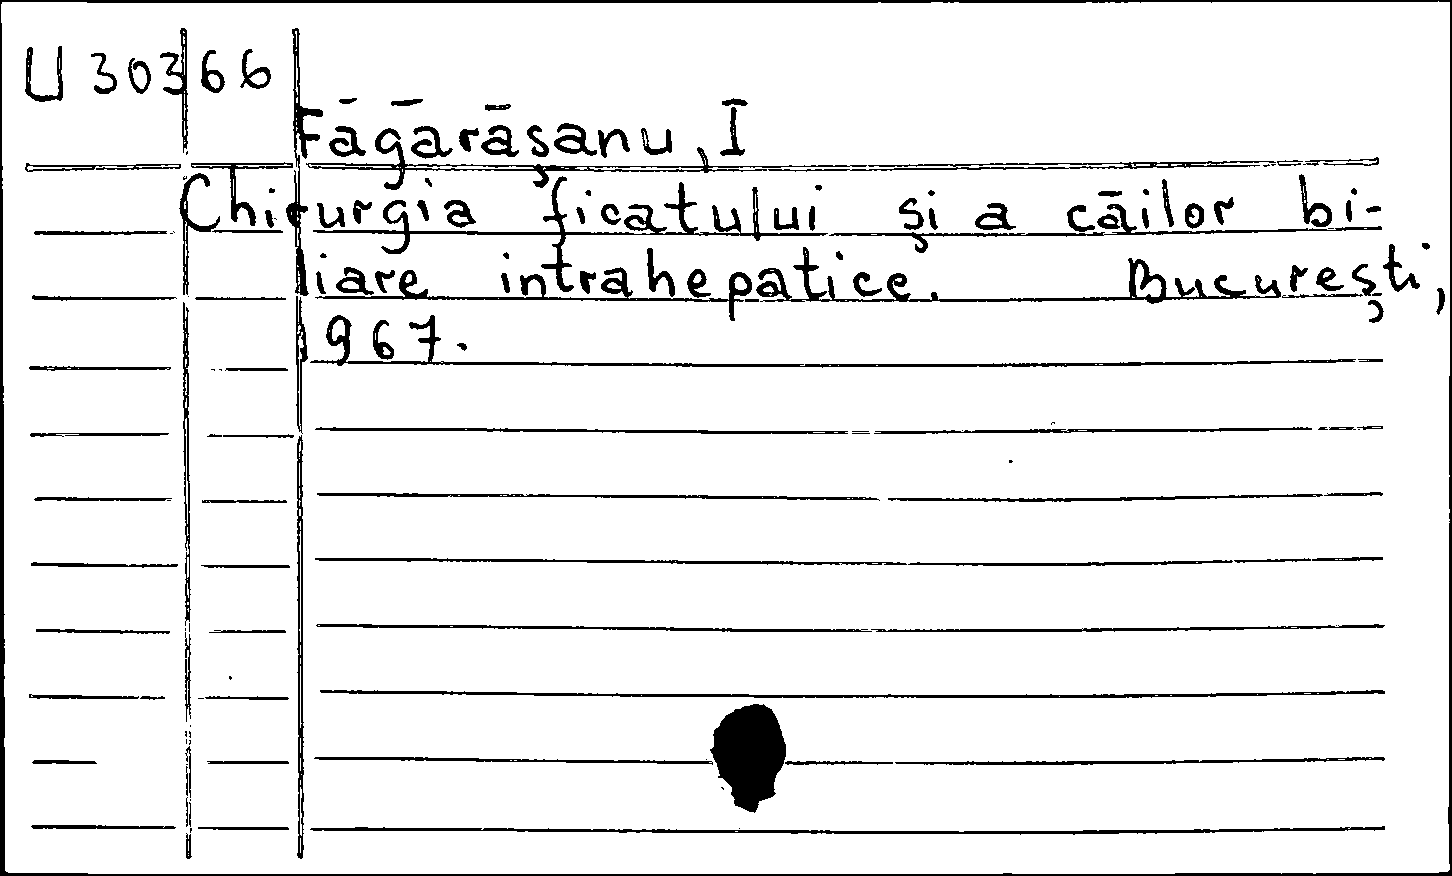 U 30366
Fāgārāşanu, I
Chirurgia ficatului şi a cāilor bi-
liare intrahepatice. Bucureşti,
1967.